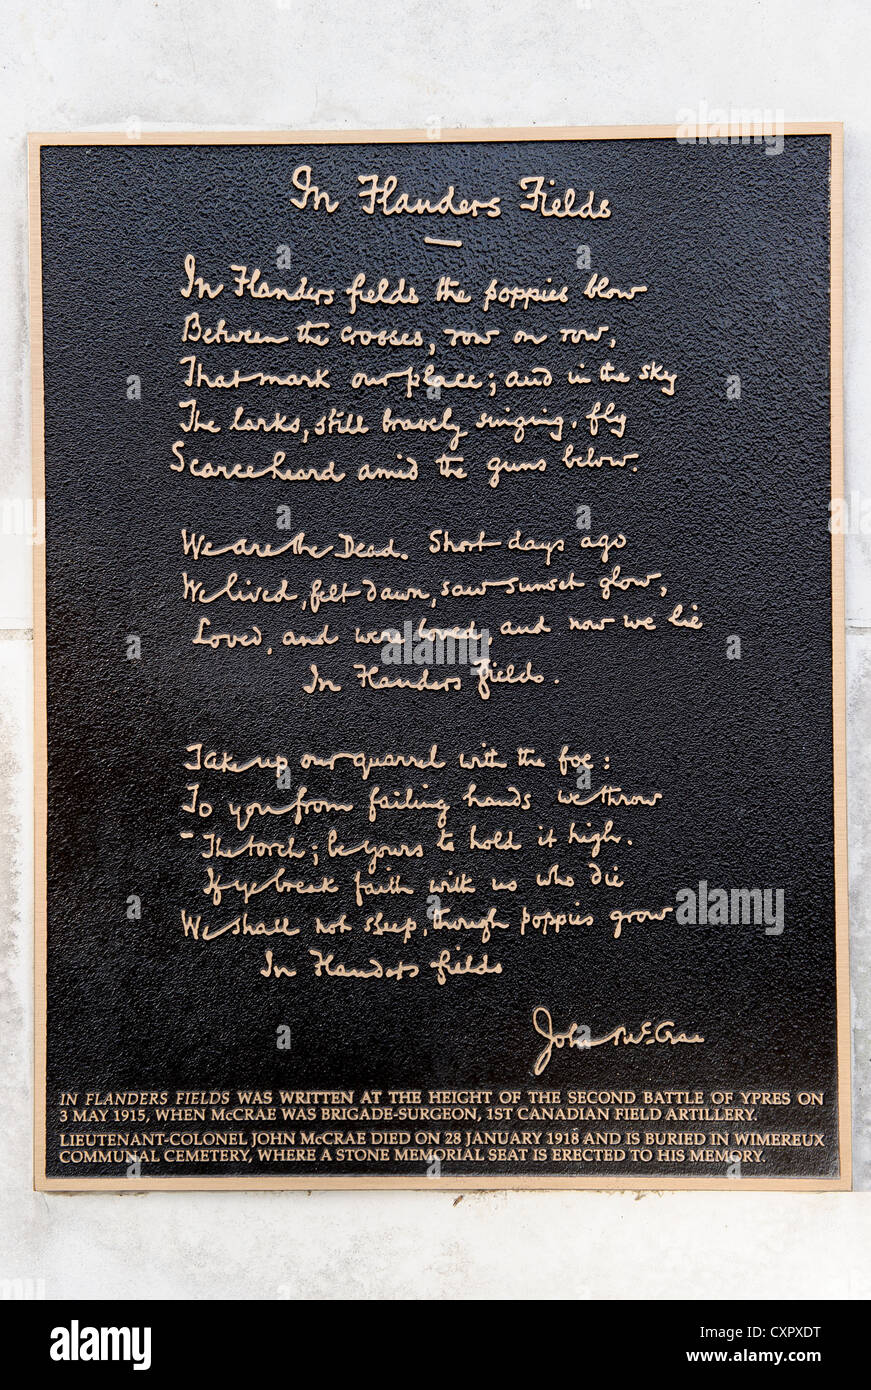 In Flanders Fields
In Flanders fields the poppies blow
Between the crosses, row on row,
That mark our place; and in the sky
The larks, still bravely singing, fly
Scarce heard amid the guns below.
We are the Dead. Short days ago
We lived, felt dawn, saw sunset glow,
Loved, and were loved, and now we lie
In Flanders fields.
Take up our quarrel with the foe:
To you from failing hands we throw
The torch; be yours to hold it high.
If ye break faith with us who die
We shall not sleep, though poppies grow
In Flanders fields
John McCrae
IN FLANDERS FIELDS WAS WRITTEN AT THE HEIGHT OF THE SECOND BATTLE OF YPRES ON
3 MAY 1915, WHEN McCRAE WAS BRIGADE-SURGEON, 1ST CANADIAN FIELD ARTILLERY.
LIEUTENANT-COLONEL JOHN McCRAE DIED ON 28 JANUARY 1918 AND IS BURIED IN WIMEREUX
COMMUNAL CEMETERY, WHERE A STONE MEMORIAL SEAT IS ERECTED TO HIS MEMORY.
alamy
a
alamy
Image ID: CXPXDT
www.alamy.com